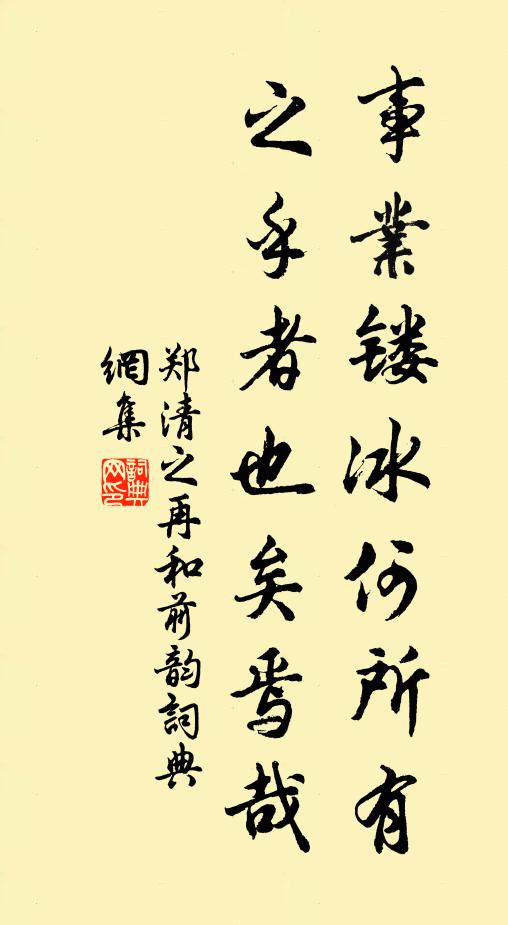 事業镂冰何所有
之乎者也矣焉哉
郑清之再和前韵詞典
網集
詞典網印